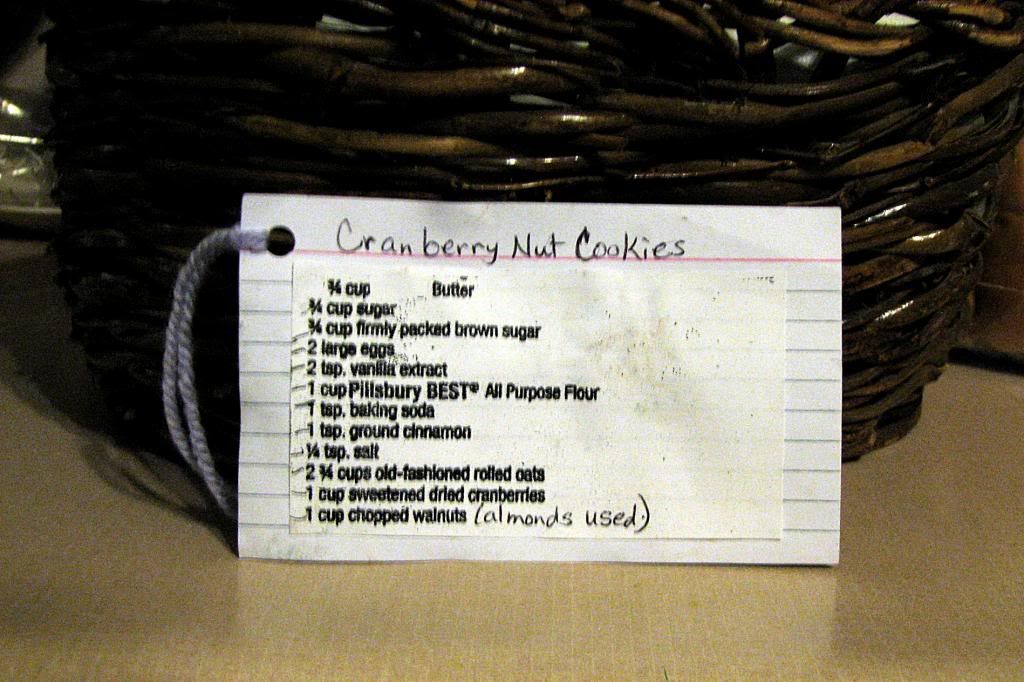 Cranberry Nut Cookies
¾ cup Butter
¾ cup sugar
¾ cup firmly packed brown sugar
2 large eggs
2 tsp. vanilla extract
1 cup Pillsbury BEST® All Purpose Flour
1 tsp. baking soda
1 tsp. ground cinnamon
¼ tsp. salt
2 ¾ cups old-fashioned rolled oats
1 cup sweetened dried cranberries
1 cup chopped walnuts (almonds used.)